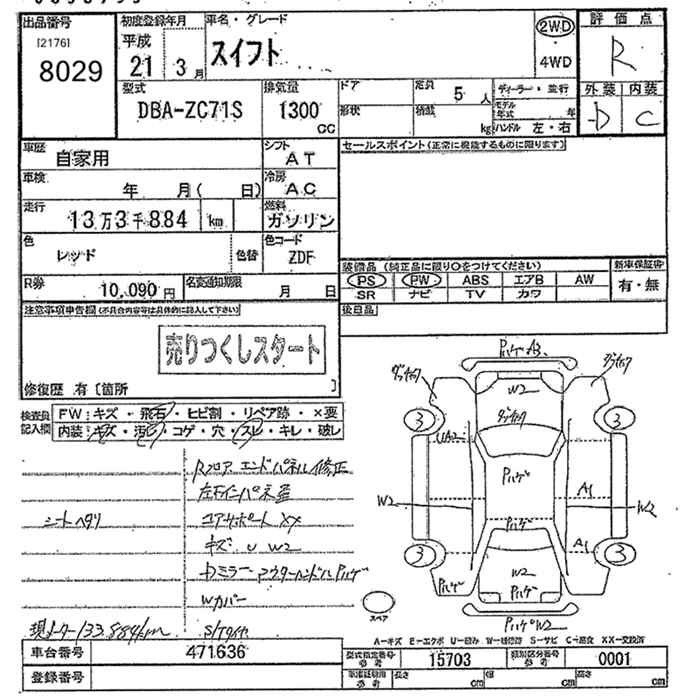 出品番号
[2176]
8029
初度登録年月
平成
21 3月
車名・グレード
スイフト
2WD
4WD
評価点
R
型式
DBA-ZC71S
排気量
1300
cc
ドア
形状
定員
5人
積載
kg
ディーラー・並行
モデル年式 年
ハンドル 左・右
外装 内装
D C
車歴
自家用
シフト
AT
セールスポイント(正常に機能するものに限ります)
車検
年 月( 日)
冷房
AC
走行
13万3千884 km
燃料
ガソリン
色
レッド
色替
色コード
ZDF
装備品(純正品に限り○をつけてください)
新車保証書
PS PW ABS エアB AW
有・無
SR ナビ TV カワ
R券
10,090円
名変通知期限
月 日
後日品
注意事項申告欄(不具合内容等は具体的に記入して下さい)
売りつくしスタート
修復歴 有[箇所 ]
検査員記入欄
FW:キズ・飛石・ヒビ割・リペア跡・×要
内装:キズ・汚レ・コゲ・穴・スレ・キレ・破レ
Rフロア エンドパネル修正
左右インパネ歪
シートヘタリ
コアサポート XX
キズ U W2
ドミラー アウターハンドルハゲ
Wカバー
現メーター133.884km
S/Tタイヤ
Pハゲ A3
W2
3 3
UA2
Pハゲ
W2
A1
W2
Pハゲ
A1
3 3
Pハゲ
W2
Pハゲ
スペア
Pハゲ W2
A-キズ E-エクボ U-凹み W-補修跡 S-サビ C-腐食 XX-交換済
車台番号
471636
型式指定番号
参考
15703
類別区分番号
参考
0001
登録番号
車庫証明用
参考
長さ cm
幅 cm
高さ cm